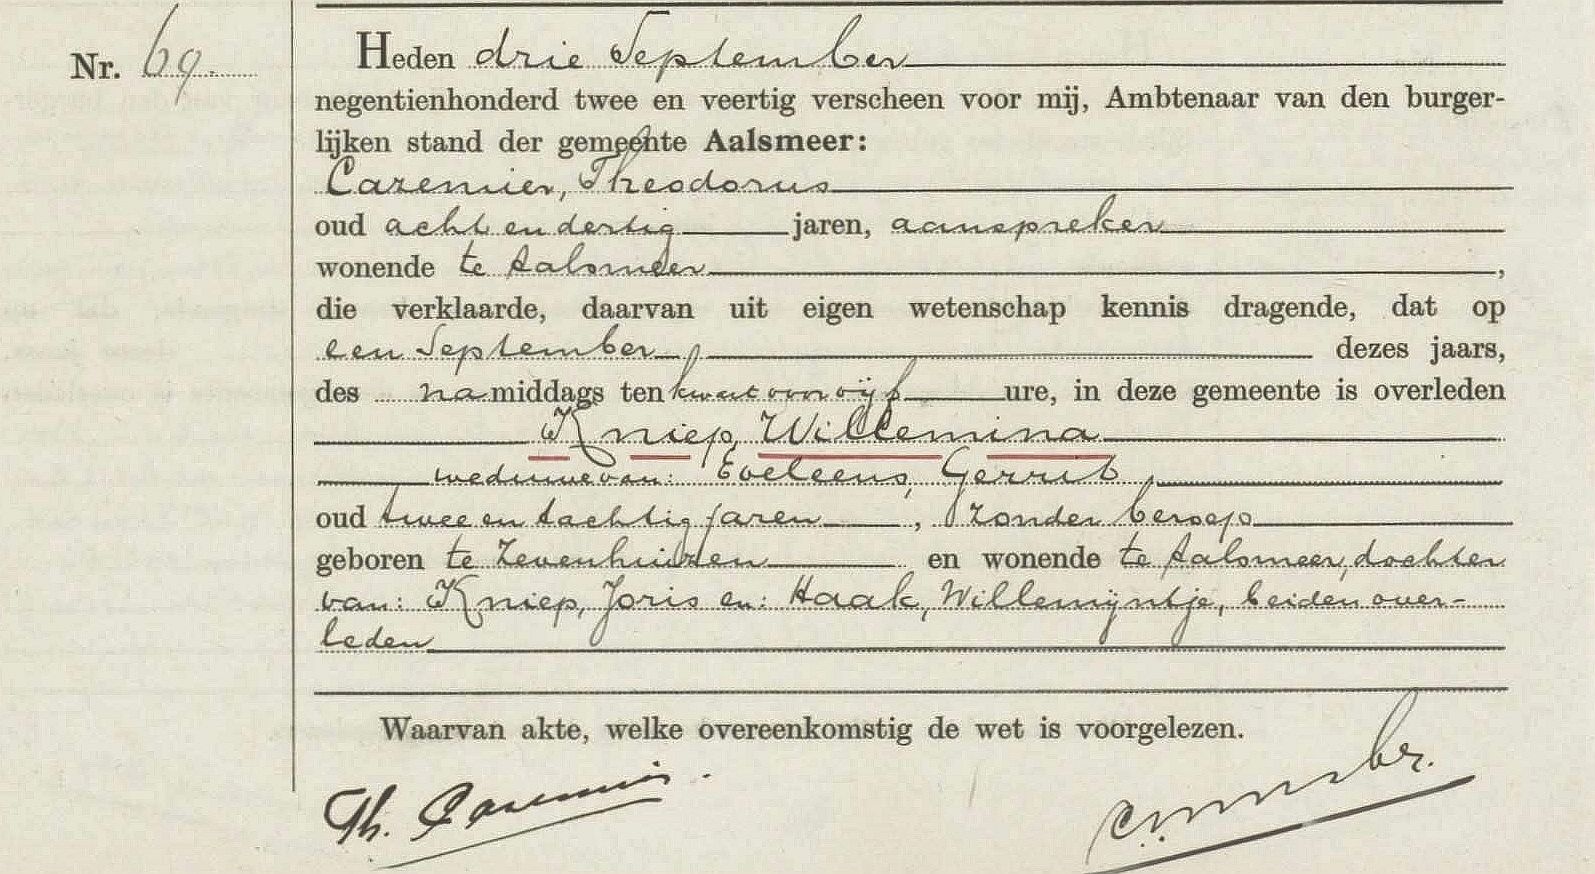 Nr. 69.
Heden drie September
negentienhonderd twee en veertig verscheen voor mij, Ambtenaar van den burger-
lijken stand der gemeente Aalsmeer:
Caremier, Theodorus
oud acht en dertig jaren, aanspreker
wonende te Aalsmeer,
die verklaarde, daarvan uit eigen wetenschap kennis dragende, dat op
een September dezes jaars,
des namiddags ten kwart voor vijf ure, in deze gemeente is overleden
Kniep, Willemina
weduwe van: Eveleens, Gerrit,
oud twee en tachtig jaren, zonder beroep
geboren te Zevenhuizen en wonende te Aalsmeer, dochter
van: Kniep, Joris en: Haak, Willemijntje, beiden over-
leden
Waarvan akte, welke overeenkomstig de wet is voorgelezen.
Th. Caremier.